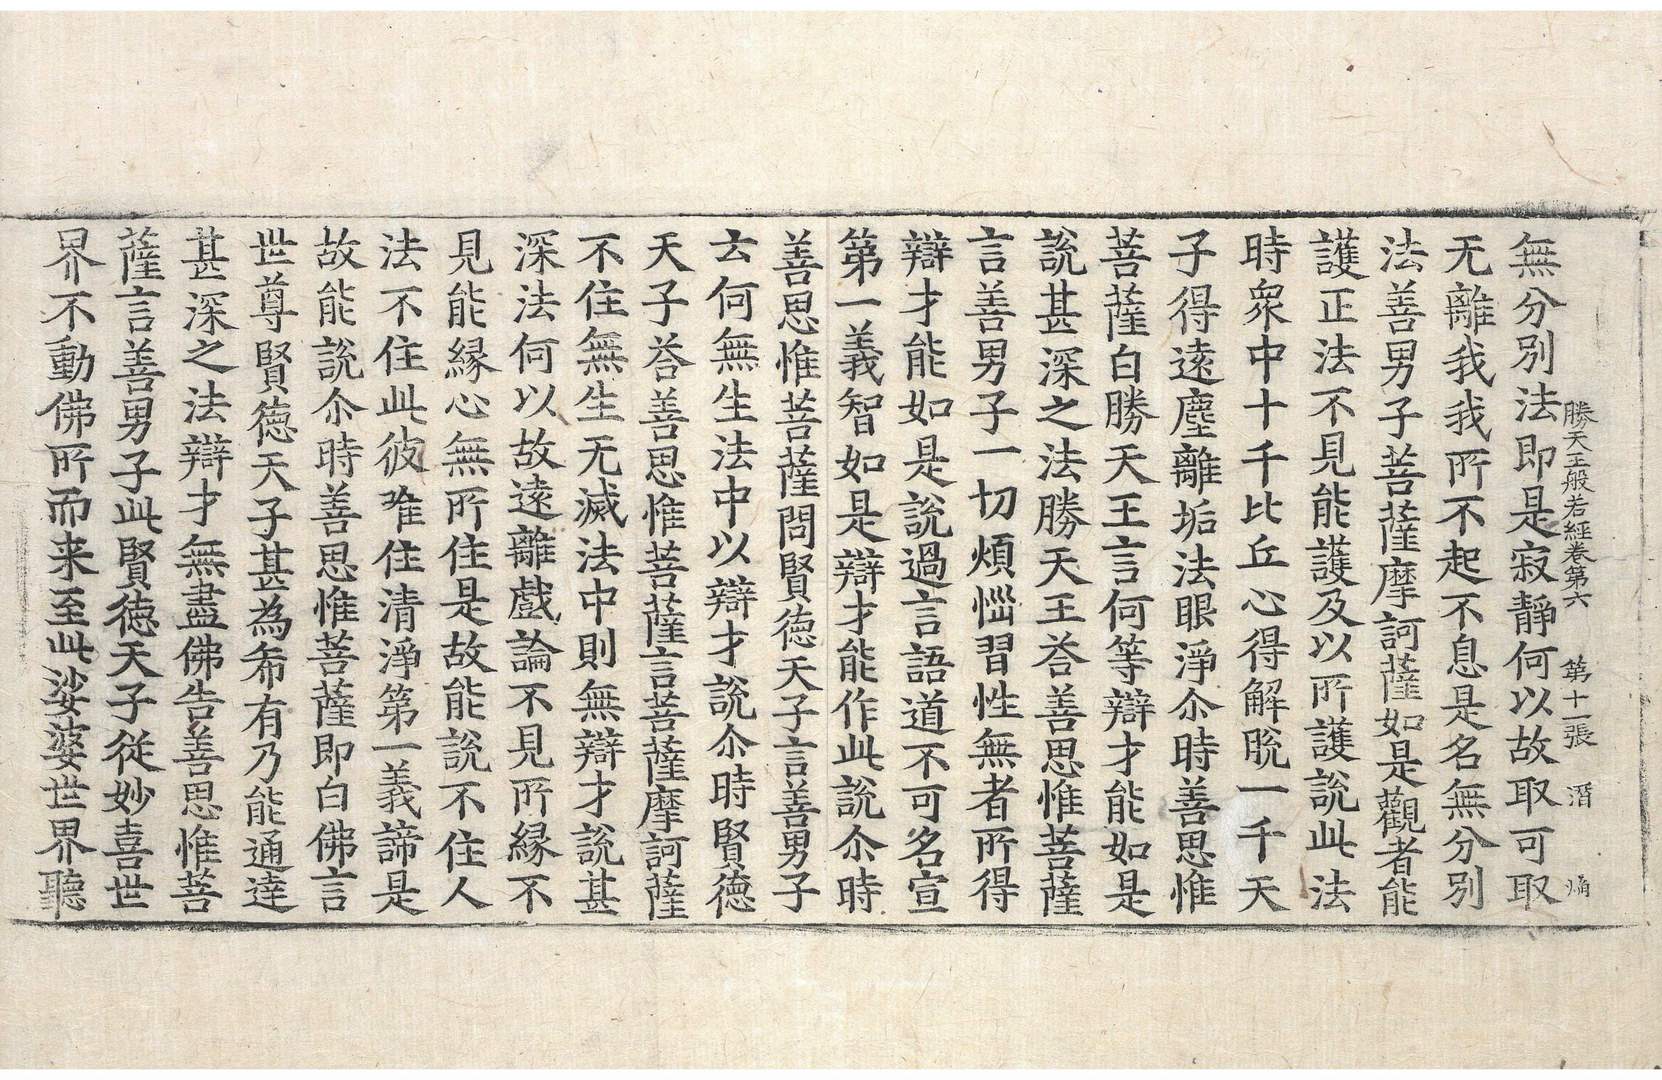 勝天王般若經卷第六 第十一張 潛
無分別法即是寂靜何以故取可取
无離我我所不起不息是名無分別
法善男子菩薩摩訶薩如是觀者能
護正法不見能護及以所護說此法
時衆中十千比丘心得解脫一千天
子得遠塵離垢法眼淨尒時善思惟
菩薩白勝天王言何等辯才能如是
說甚深之法勝天王荅善思惟菩薩
言善男子一切煩惱習性無者所得
辯才能如是說過言語道不可名宣
第一義智如是辯才能作此說尒時
善思惟菩薩問賢德天子言善男子
云何無生法中以辯才說尒時賢德
天子荅善思惟菩薩言菩薩摩訶薩
不住無生无滅法中則無辯才說甚
深法何以故遠離戲論不見所縁不
見能縁心無所住是故能說不住人
法不住此彼唯住清淨第一義諦是
故能說尒時善思惟菩薩即白佛言
世尊賢德天子甚為希有乃能通達
甚深之法辯才無盡佛告善思惟菩
薩言善男子此賢德天子從妙喜世
界不動佛所而来至此娑婆世界聽